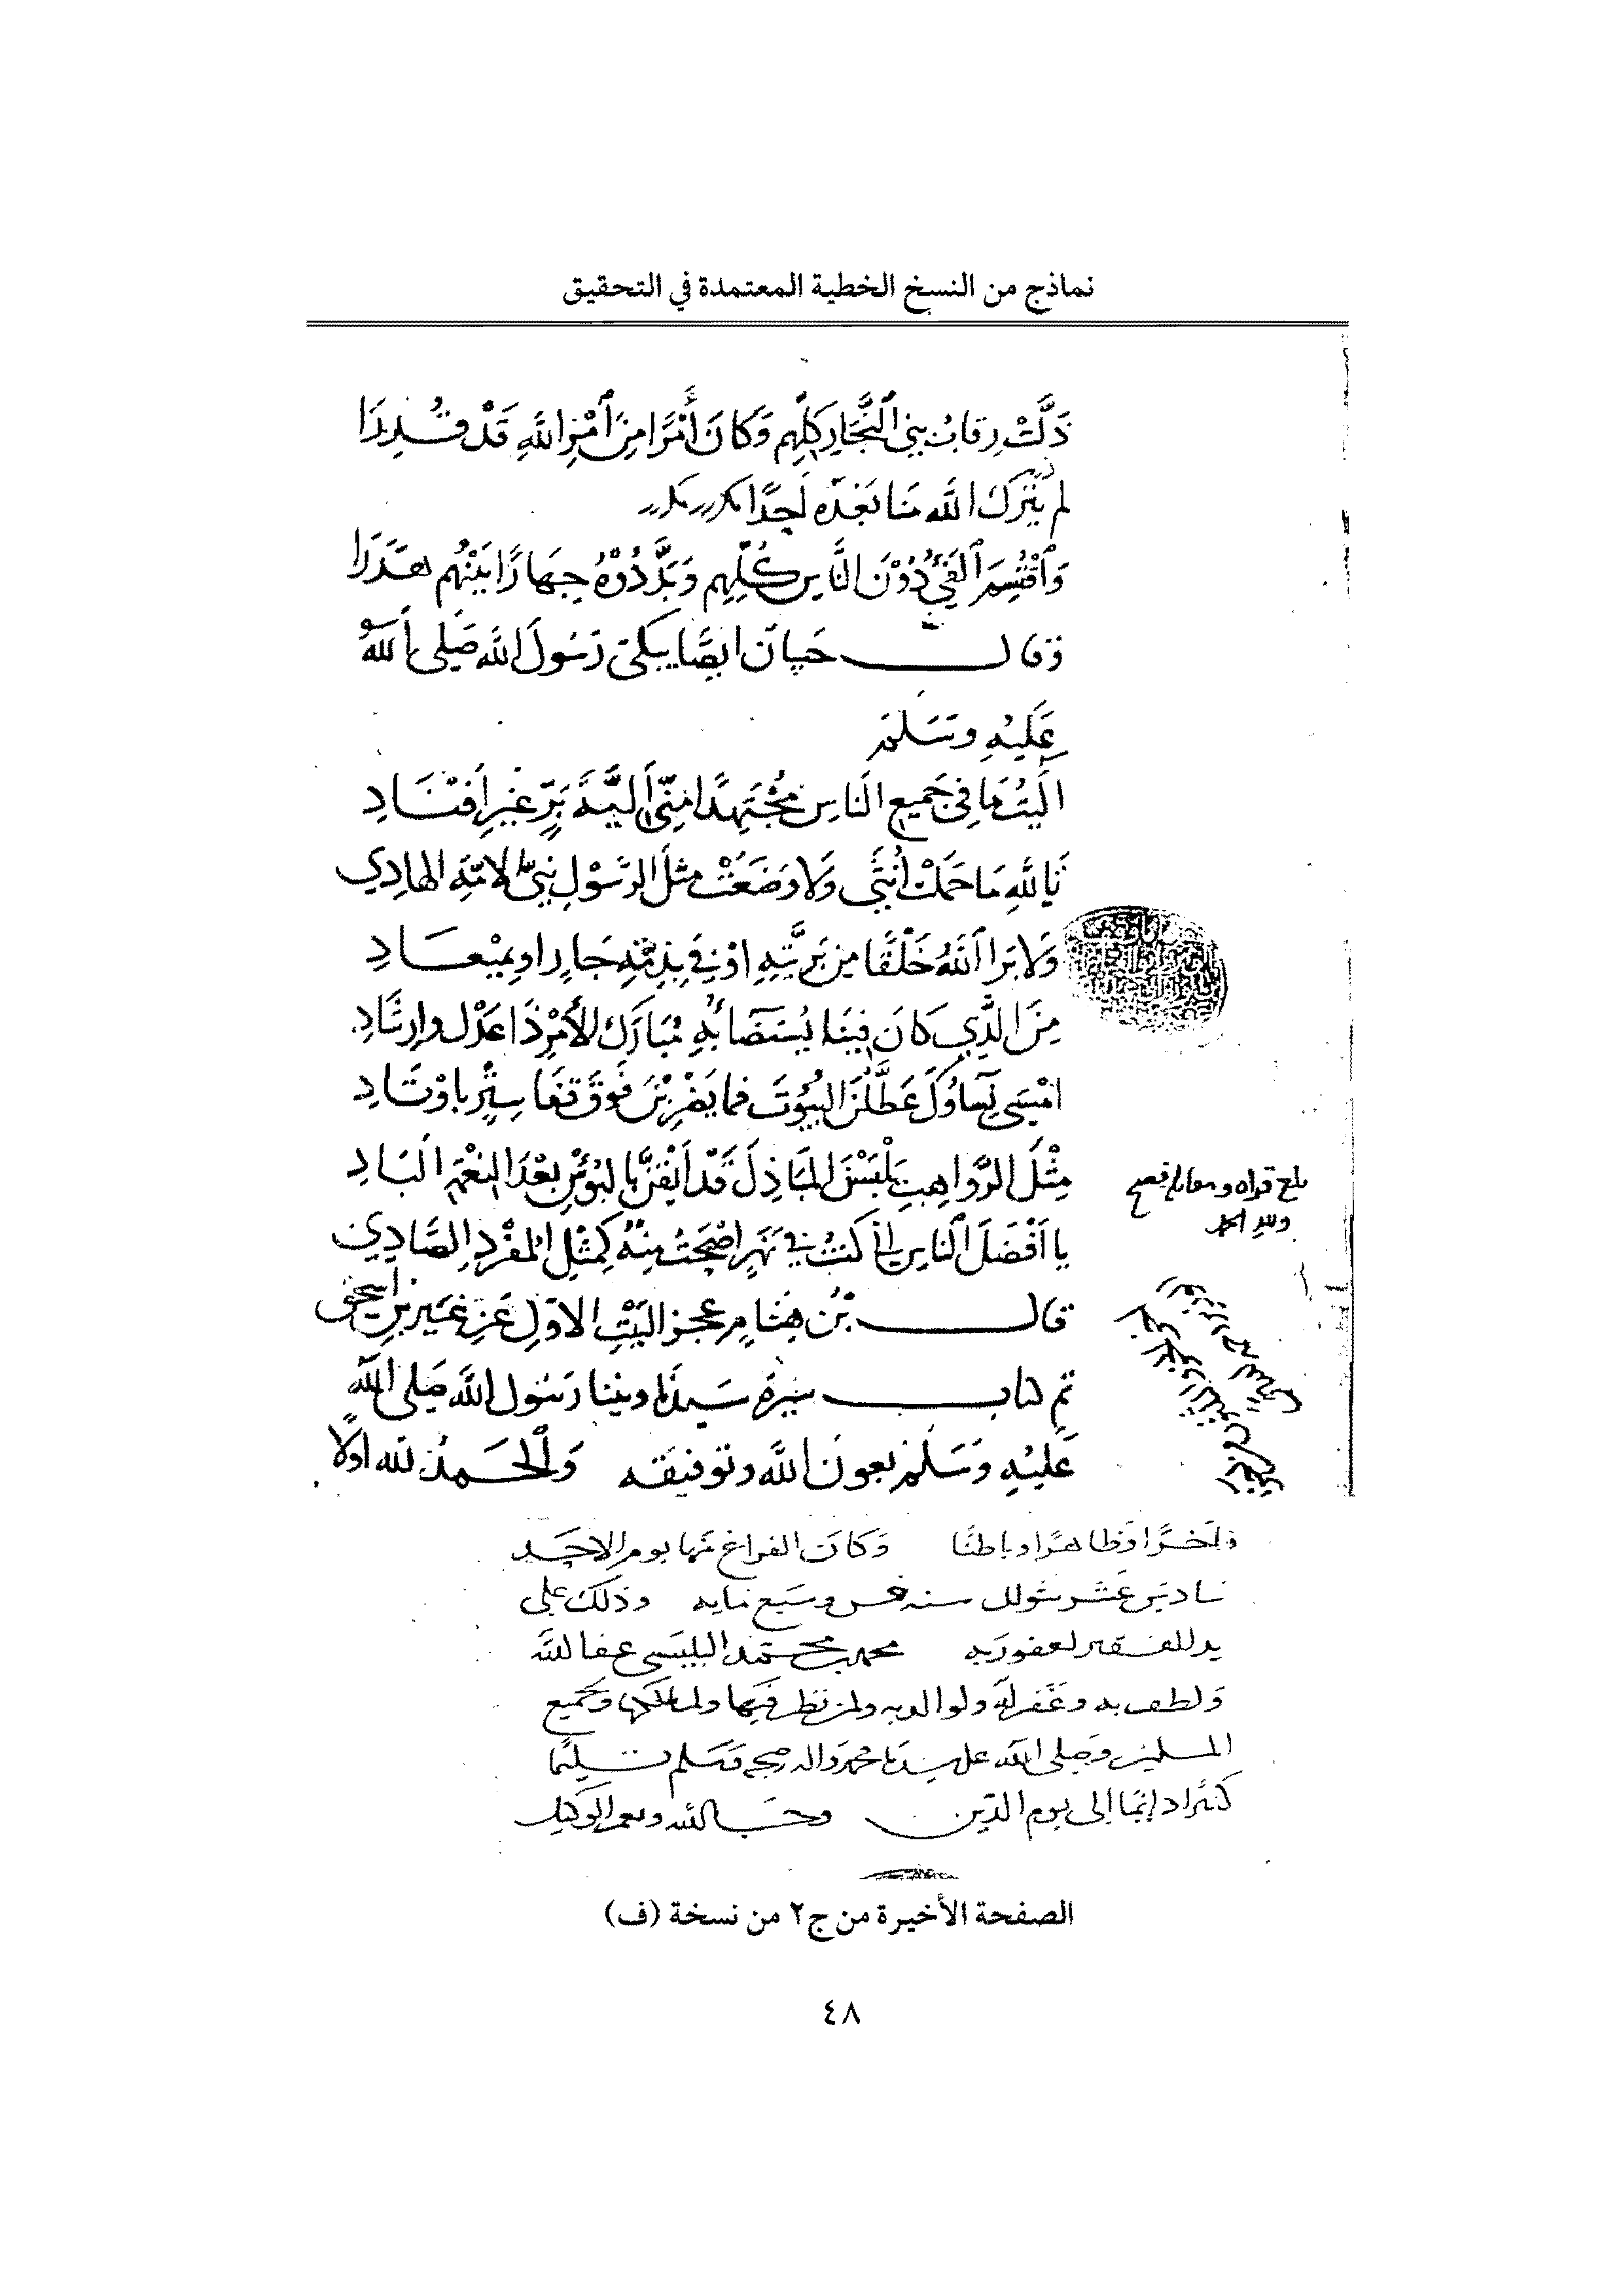 نماذج من النسخ الخطية المعتمدة في التحقيق
ذَلَّتْ رِقابُ بني النَّجّارِ كلِّهِم وَكانَ أَمْرًا مِنَ اَمْرِ اللهِ قَدْ قُدِرَا
لم يَتْرُك الله منا بَعْدَه أَحدًا
وَاقْتُسِمَ الفَيْءُ دُوْنَ النَّاسِ كُلِّهِم وَبَدَّدُوْهُ جِهَارًا بَيْنَهُم هَدَرَا
وقال حَسان ايضًا يبكي رَسُولَ الله صَلى اللهُ
عَلَيْهِ وسَلم
الَيْتُ ما في جَميع النَاسِ مُجْتَهِدًا مِنّي أَليَّةَ بَرٍّ غَيْرِ اِفْنَادِ
تَاللهِ مَا حَمَلتْ أُنْثَى وَلا وَضَعَتْ مثْلَ الرَّسُوْلِ نَبِيِّ الامّةِ الهادِي
وَلا بَرا اللهُ خَلْقًا مِن بَرِيَّتِهِ اوْفي بذِمَّةِ جَارٍ او بِمِيْعَادِ
مِنَ الَّذِي كانَ فِينَا يُسْتَضَاءُ بِهِ مُبَارَكَ الأَمْرِ ذَا عَدْلٍ وارِشَادِ
امْسَى نِسَاؤُكَ عَطَّلْنَ البُيُوْتَ فما يَضْرِبْنَ فَوْقَ قَفَا سِتْرٍ باوْتَادِ
مِثْلَ الرَّوَاهِبِ يَلْبَسْنَ المَبَاذِلَ قَدْ اَيْقَنَّ بالبُؤْسِ بَعْدَ النعْمَةِ البَادِ
يا اَفْضَلَ الناسِ اني كنتُ في نَهَرٍ اصْبَحْتُ مِنْهُ كَمِثْلِ المُفْرَدِ الصَّادِي
قال بْن هِشام عجز البَيْتِ الاوّلِ عَن غَيرِ بن اسحٰق
تم كتاب سِيرة سَيدنا ونبينا رَسُول الله صَلى الله
عَليْهِ وَسَلم بعون الله وتوفيقه وَالحَمدُ لله اولًا
وآخرًا وَظاهرًا وباطنًا وَكانَ الفراغ منها يومَ الاحَد
سادسَ عَشَر شوال سنه خمس وسَبع مايه وذلك على
يد الفقير لعفو رَبه محمد بن محمّد البلبيسى عفا الله
وَلطف به وغَفر له ولوالديه ولمن نظر فيها ولمالكها وجميع
المسلمين وصَلى الله على سيدنا محمد واله وصحبه وسَلم تسليمًا
كثيرًا دايمًا الى يوم الدين وحسبنا الله ونعم الوكيل
بلغ قراه ومقابله فصح
ولله الحمد
الصفحة الأخيرة من ج٢ من نسخة (ف)
٤٨